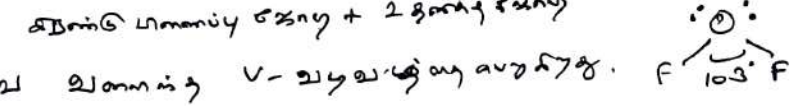 இரண்டு பிணைப்பு ஜோடி + 2 தனித்த ஜோடி
வளைந்த V- வடிவத்தை பெறுகிறது.
O
F 103° F